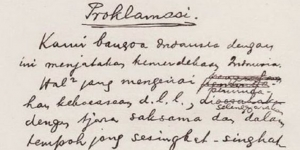 Proklamasi.
Kami bangsa Indonesia dengan
ini menjatakan kemerdekaan Indonesia.
Hal² jang mengenai peminda-
han kekoeasaan d.l.l.,
dengan tjara saksama dan dalam
tempoh jang sesingkat-singkat